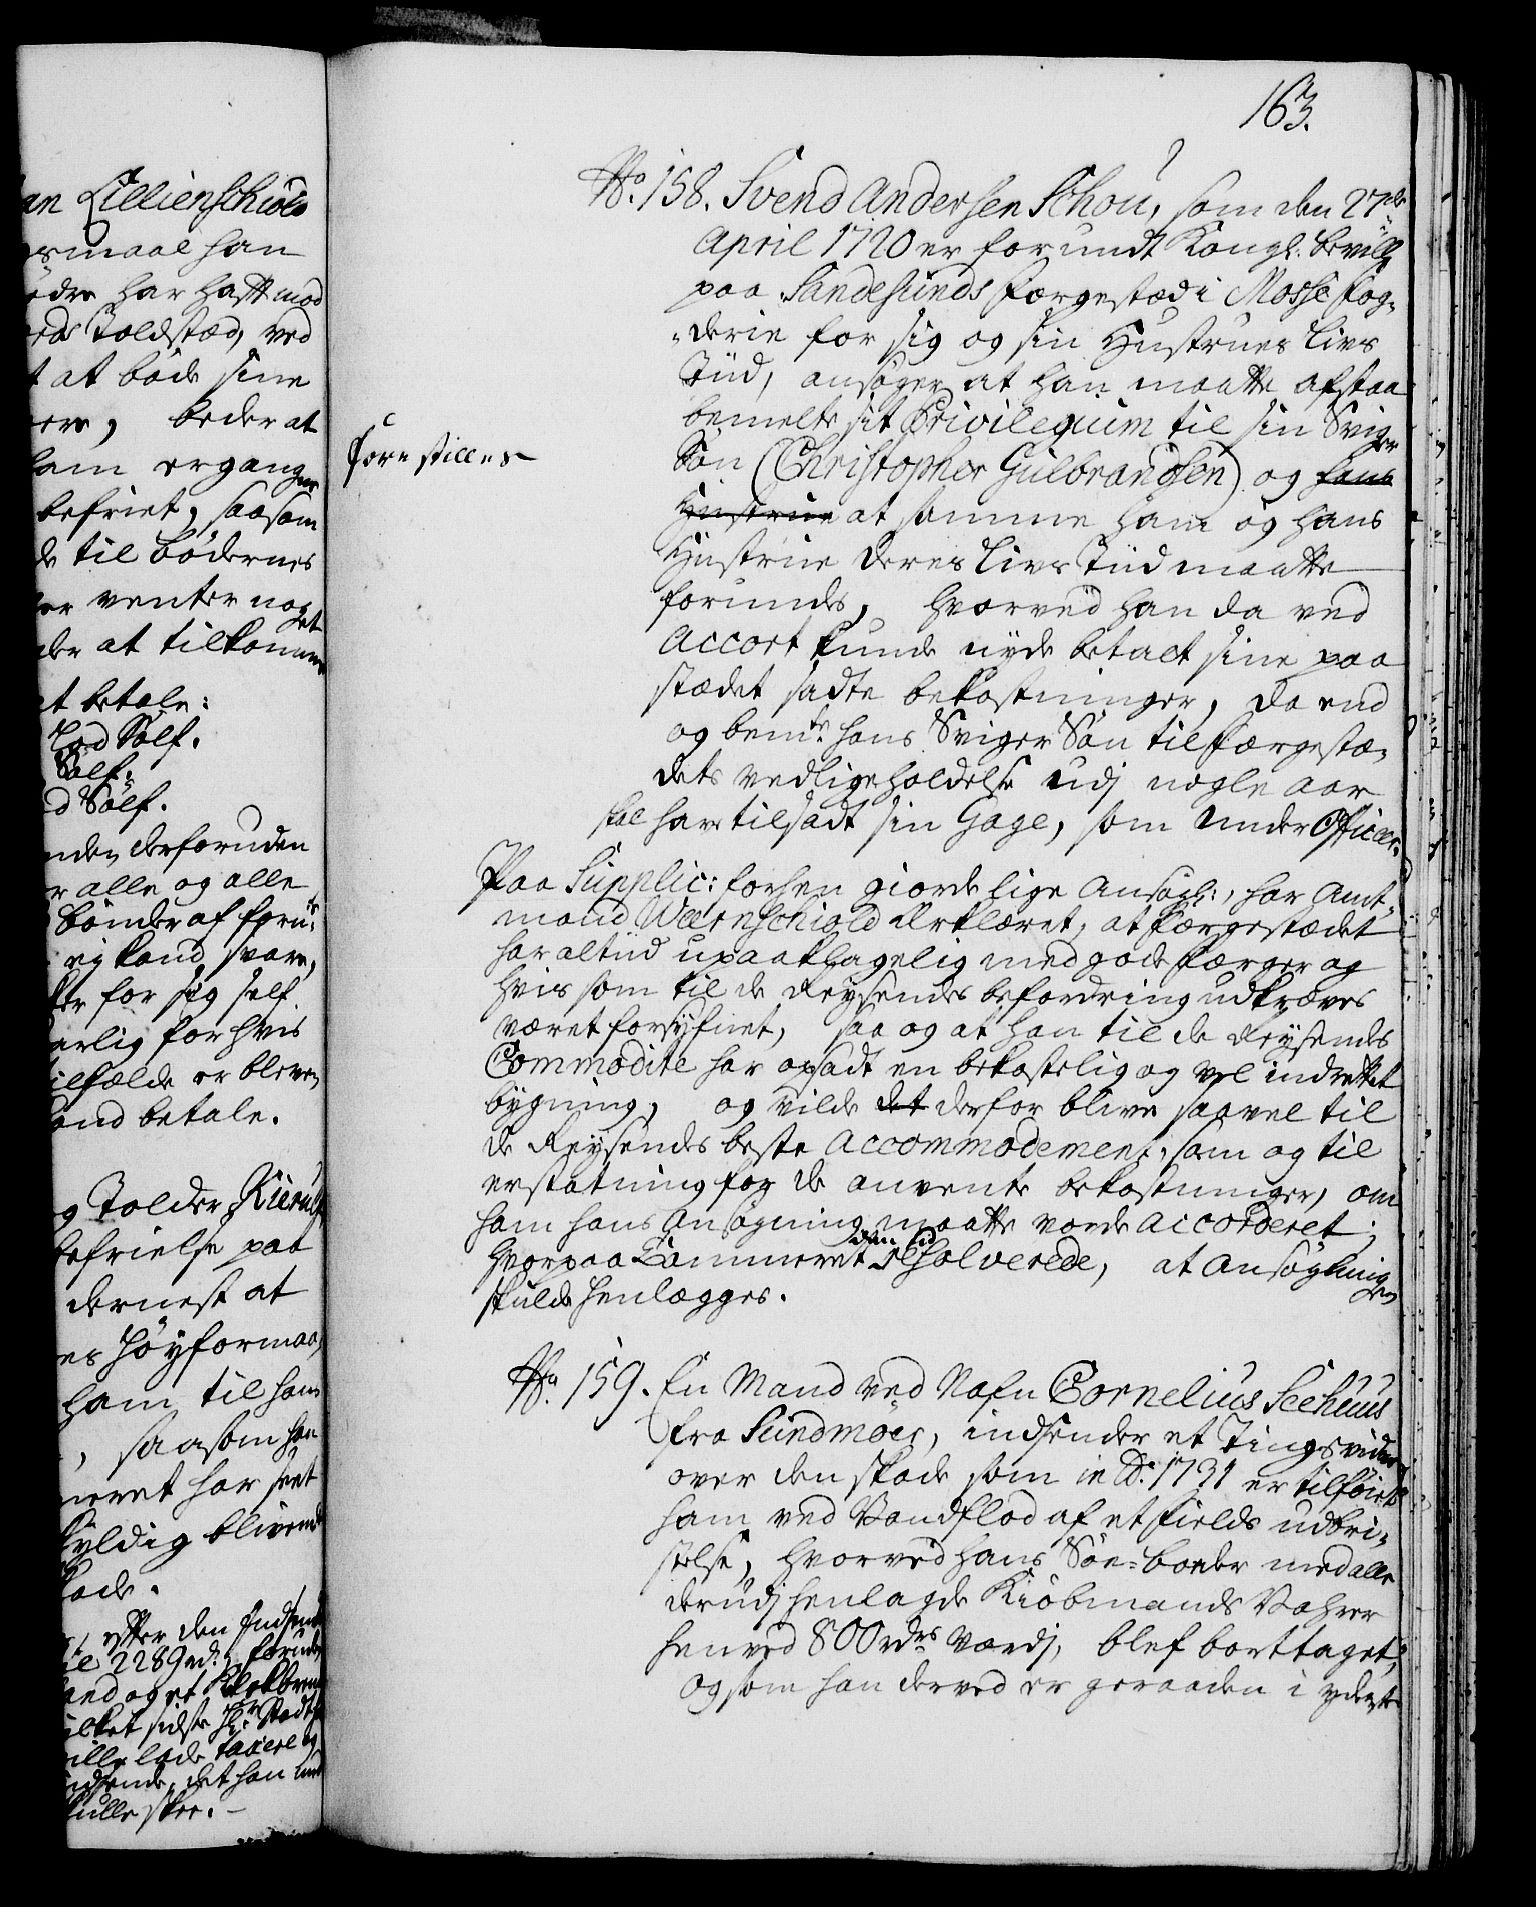 163.
No. 158. Svend Andersen Schou, som den 27de
April 1720 er forundt Kongl: bevilln
paa Sandesunds færgestæd i Mosse fog-
derie for sig og sin Hustrues livs
Tiid, ansøger at han maatte afstaa
bemelte sit Privilegium til sin Sviger
Søn (Christopher Gulbrandsen) og hans
Hustrue at samme ham og hans
Hustrue deres livs Tiid maatte
forundes, hvorved han da ved
Accort kunde nyde betalt sine paa
stædet sadte bekostninger, da end
og bemte hans Sviger Søn til færgestæ-
dets vedligeholdelse udj nogle aar
skal have tilsadt sin Gage, som Under Officer.
forestilles
Paa Supplic: forhen giorde lige Ansøgn:, har Amt-
mand Wærnschiold Erklæret, at færgestædet
har altiid upaaklagelig med gode færger og
hvis som til de Reysendes befordring udkræves
været forsyfnet, saa og at han til de Reysendes
Commodite har opsadt en bekostelig og vel indrettet
bygning, og vilde det derfor blive saavel til
de Reysendes beste Accommodement, som og til
erstatning for de anvente bekostninger, om
ham hans Ansøgning maatte vorde accorderet;
den tid
hvorpaa Cammeret resolverede, at Ansøgningen
skulde henlægges.
No. 159. En Mand ved Nafn Cornelius Seehuus
fra Sundmøer, indsender et Tingsvidne
over den skade som in Ao. 1731 er tilføiet
ham ved Vandflod af et fields udbri-
stelse, hvorved hans Søe-boder med alle
derudj henlagde Kiøbmands Vahrer
henved 800 rdrs værdj, blef borttaget,
og som han derved er geraaden i yderste
an Lillienschiold
smaal han
har hafft mod
Toldstæd, ved
at bøde sine
beder at
ham ergangne
befriet, saasom
de til bødernes
er venter noget
der at tilkomme
at betale:
Lod Sølf.
Sølf.
d Sølf.
nden derforuden
r alle og alle
bønder af forn:
ej kand svare,
for sig self.
arlig for hvis
ilfælde er bleven
and betale.
g Tolder Kierulf
befrielse paa
dernest at
es Høyformaa,
ham til ham
, saasom han
neret har seet
kyldig blivende
kade.
effter den Indsendte
2289 rd:
and og et
ulket sidste
ville lade taxere og
ndsende, det han und
kulle skee. -